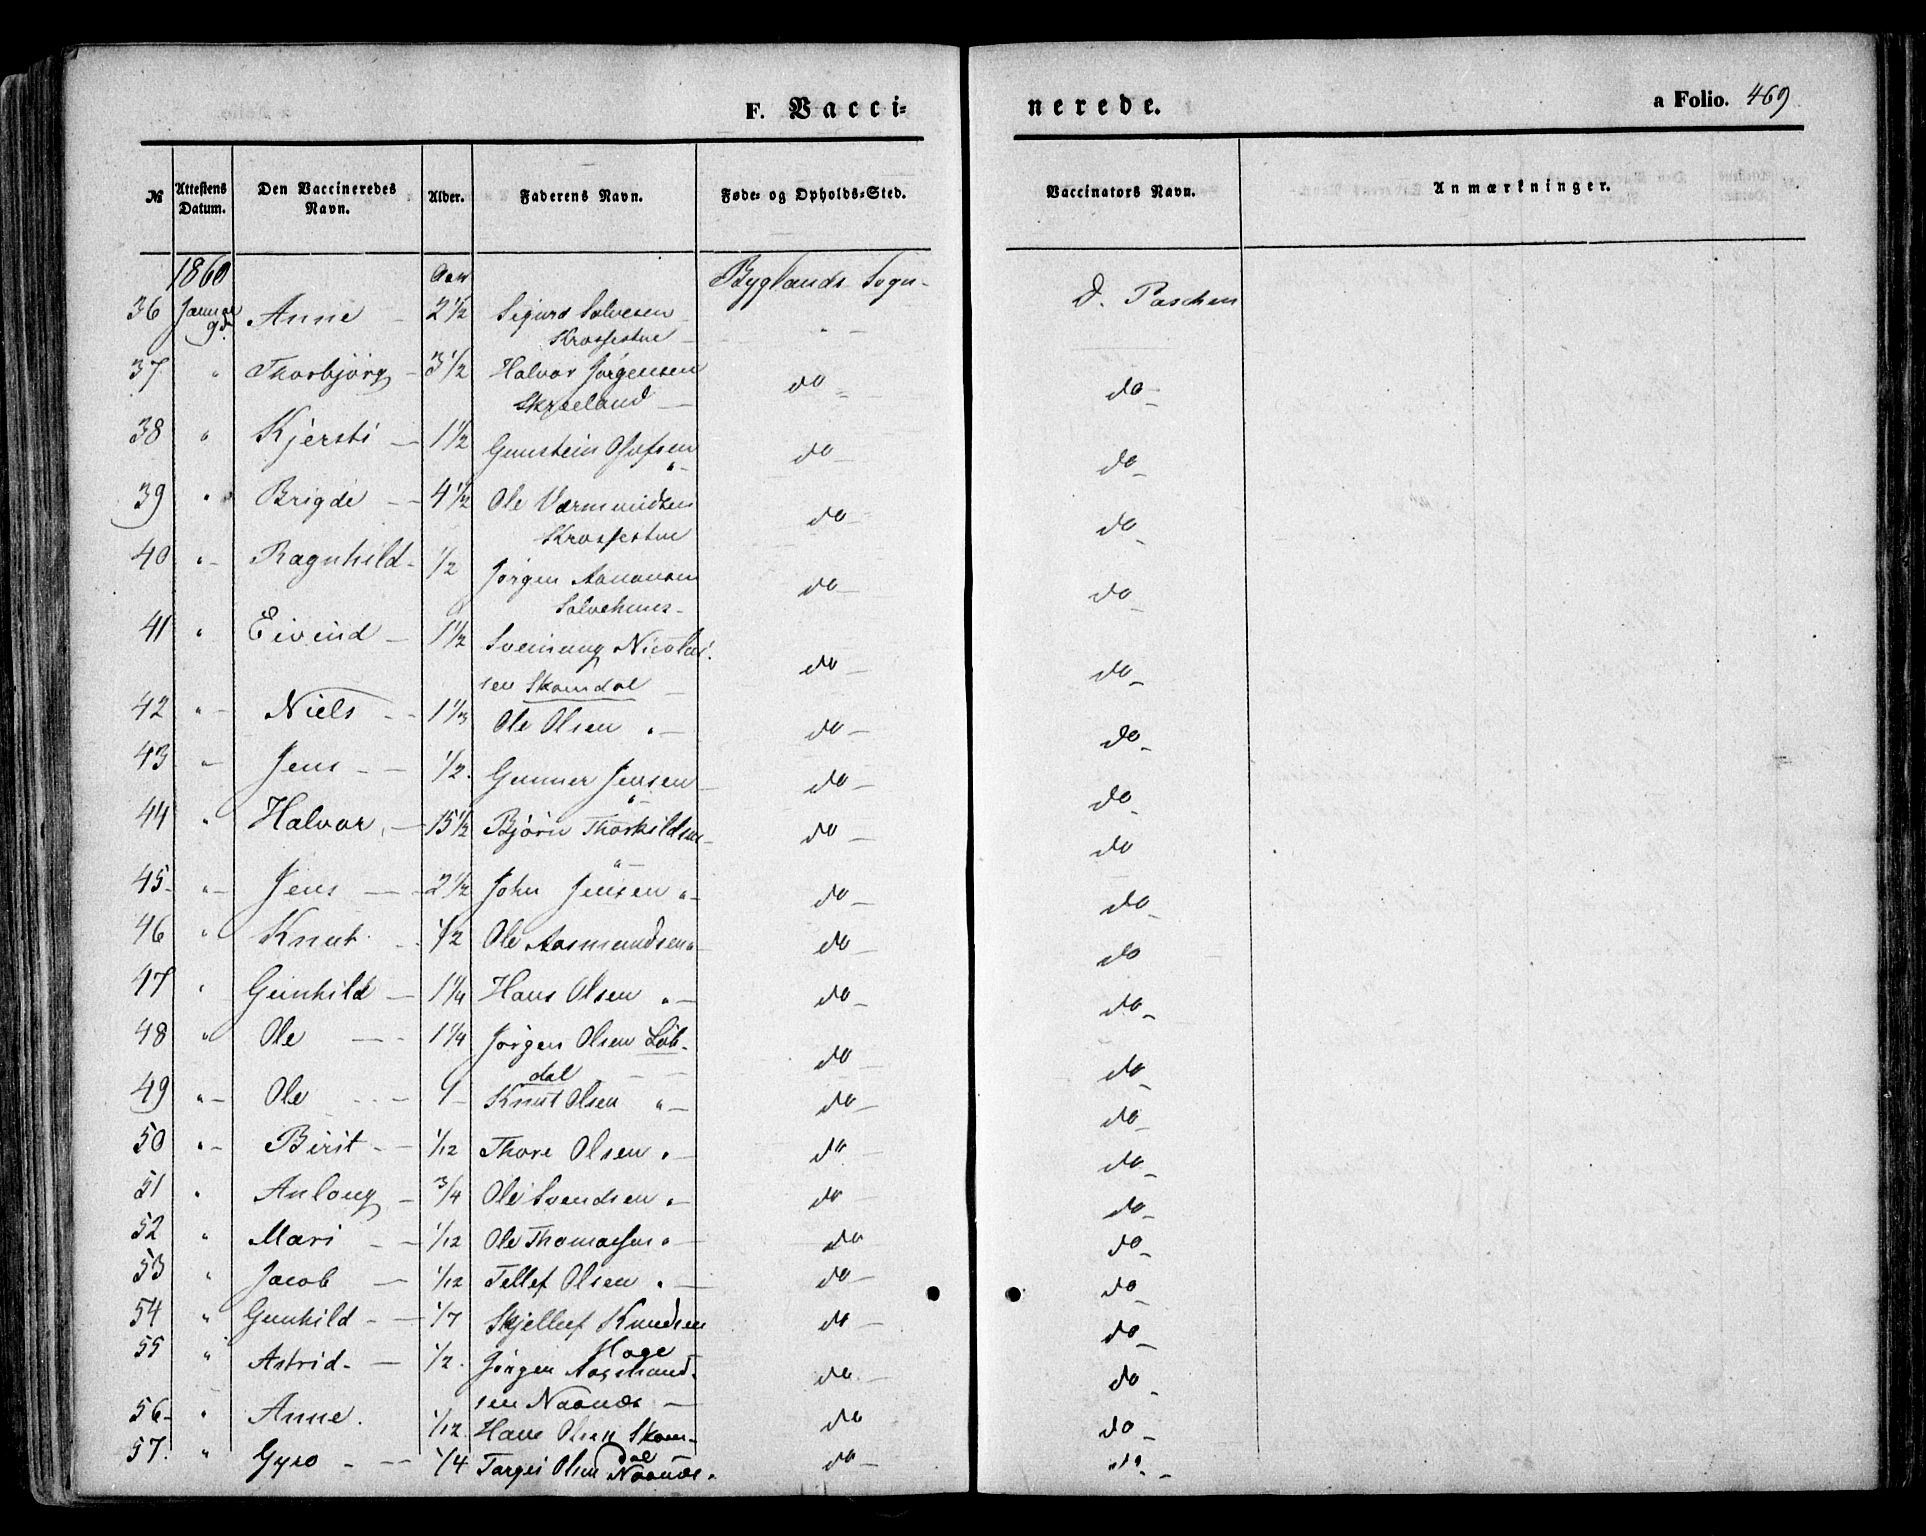 F. Vacci=
nerede.
a Folio. 469
№ Attestens Datum. Den Vaccineredes Navn. Alder. Faderens Navn. Føde= og Opholds=Sted. Vaccinators Navn. Anmærkninger.
1860 Aar Byglands Sogn.
36 Januar 9d. Anne – 2 1/2 Sigurd Salvesen D. Paschen
Krossestue – " –
37 " Thorbjörg – 3 1/2 Halvor Jørgensen do do
Skræland –
38 " Kjersti – 1 1/2 Gunstein Olufsen do – do –
" –
39 " Brigde – – 4 1/2 Ole Værmundsen do – do –
Krossestue
40 " – Ragnhild – 1/2 Jørgen Aanonsen do – do –
Salvehuus –
41 " Eivind – 1 1/2 Sveinung Nicolai- do – do –
sen Skomdal –
42 " – Niels – – 1 1/3 Ole Olsen " – do – do –
43 " – Jens – – 1/2. Gunner Jensen – do – do –
" –
44 " Halvor. – 15 1/2 Bjørn Thorkildsen – do – do
" –
45 – " – Jens – – 2 1/2 John Jensen " – do – do –
46 " Knut – 1/2 Ole Aasmundsen " – do – do
47 " Gunhild – 1 1/4 Hans Olsen " – do – do –
48 " Ole – – 1 1/4 Jørgen Olsen Löb- do – do –
dal – –
49 " – Ole – – 9 – Knut Olsen " – do – do –
50 " – Birit – – 1/12 Thore Olsen " – do – do –
51 " Anlaug – 3/4 Ole Svendsen " – do – do –
52 " Mari – – 1/12 Ole Thomassen " – do do –
53 " Jacob – 1/12 Tellef Olsen " – do – do –
54 " Gunhild – – 1/7 Skjellef Knudsen do – do –
Hage
55 " Astrid – – 1/2. Jørgen Aasmund- do – do –
sen Naanes –
56 – " Anne. 1/12 Hans Olsen Skom- do do –
dal
57. " Gyro – – – 1/4 Targei Olsen Naanes. do – do –